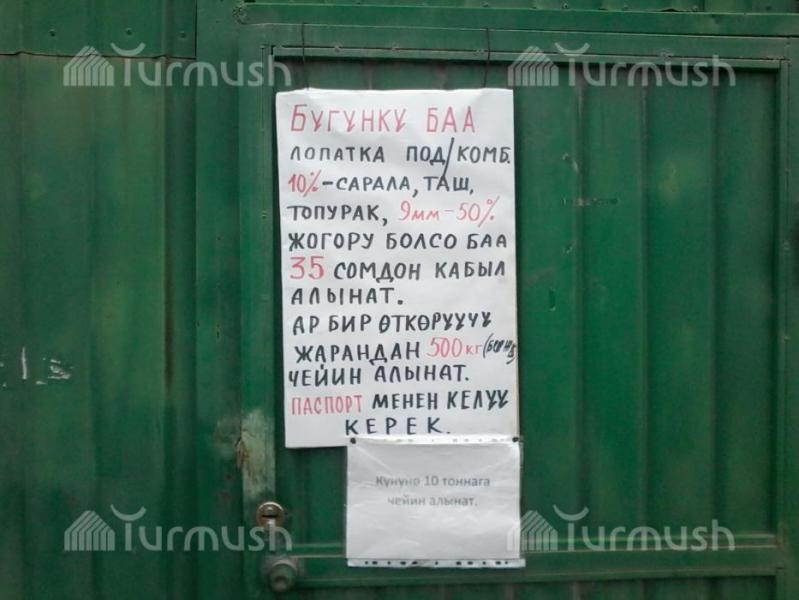 Turmush
Turmush
БҮГҮНКҮ БАА
ЛОПАТКА ПОД/КОМБ.
10%-САРАЛА, ТАШ,
ТОПУРАК, 9мм-50%
ЖОГОРУ БОЛСО БАА
35 СОМДОН КАБЫЛ
АЛЫНАТ.
АР БИР ӨТКӨРҮҮЧҮ
ЖАРАНДАН 500кг
ЧЕЙИН АЛЫНАТ.
ПАСПОРТ МЕНЕН КЕЛҮҮ
КЕРЕК.
Күнүнө 10 тоннага
чейин алынат.
Turmush
Turmush